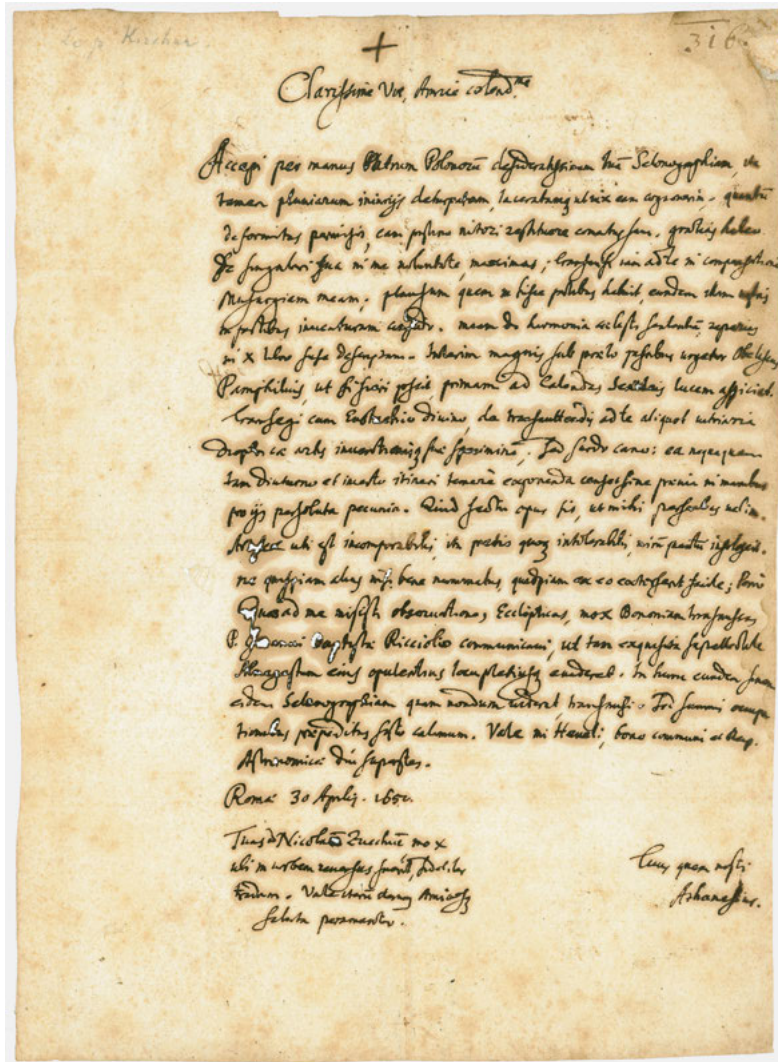 P. Kircher.
316
+
Clarissime Vir, Amice colend.me
Accepi per manus Patrum Polonorū desideratissimam tuā Selenographiam, ita
tamen pluviarum iniurijs deturpatam, ut vix eam cognoverim. quantū
deformitas permisit, eam pristino nitori restituere conatus sum. gratias habeo
singulari in me voluntate, maximas; transmisi iam ad te in compensationē
Musurgiam meam; plausum quem in hisce partibus habuit, eundem
in partibus inventuram confido. meam de harmonia cœlesti sententiā, reperies
in X libro fuse descriptam. Interim magnis sub prælo passibus urgetur Obeliscus
Pamphilius, ut si fieri possit, primam ad Calendas Sextilis lucem aspiciat.
Transegi cum Eustachio Divino, de transmittendis ad te aliquot
Dioptricæ artis inventionisq suæ speciminā; sed surdo cano: ea nequaquam
tam diuturno et incerto itineri temere exponenda censet sine prius in manibus
pro ijs persoluta pecunia. Quid facto opus sit, ut mihi perscribas velim.
uti est incomparabilis, ita pretio quoq intolerabilis,
ne quispiam alius nisi bene nummatus, quidpiam ex eo extorserit facile; Porrò
Quas ad me misisti observationes Eclipticas, mox Bononiam transmissas
P. Joanni Baptistæ Ricciolio communicavi, ut tam exquisita supellectile
Almagestum eius opulentius locupletiusq evaderet. In hunc eundem finem
eidem Selenographiam quam nondum viderat, transmisi. Sed summis occupa
tionibus præpeditus sisto calamum. Vale mi Heveli, bono communi et Reip.
Astronomicæ diu superstes.
Romæ 30 Aprilis. 1650.
Tuas P. Nicolao Zucchio mox
ubi in urbem reversus fuerit, fideliter
tradam. Vale iterū Amicosq
saluta peramanter.
Tuus quem nosti
Athanasius.